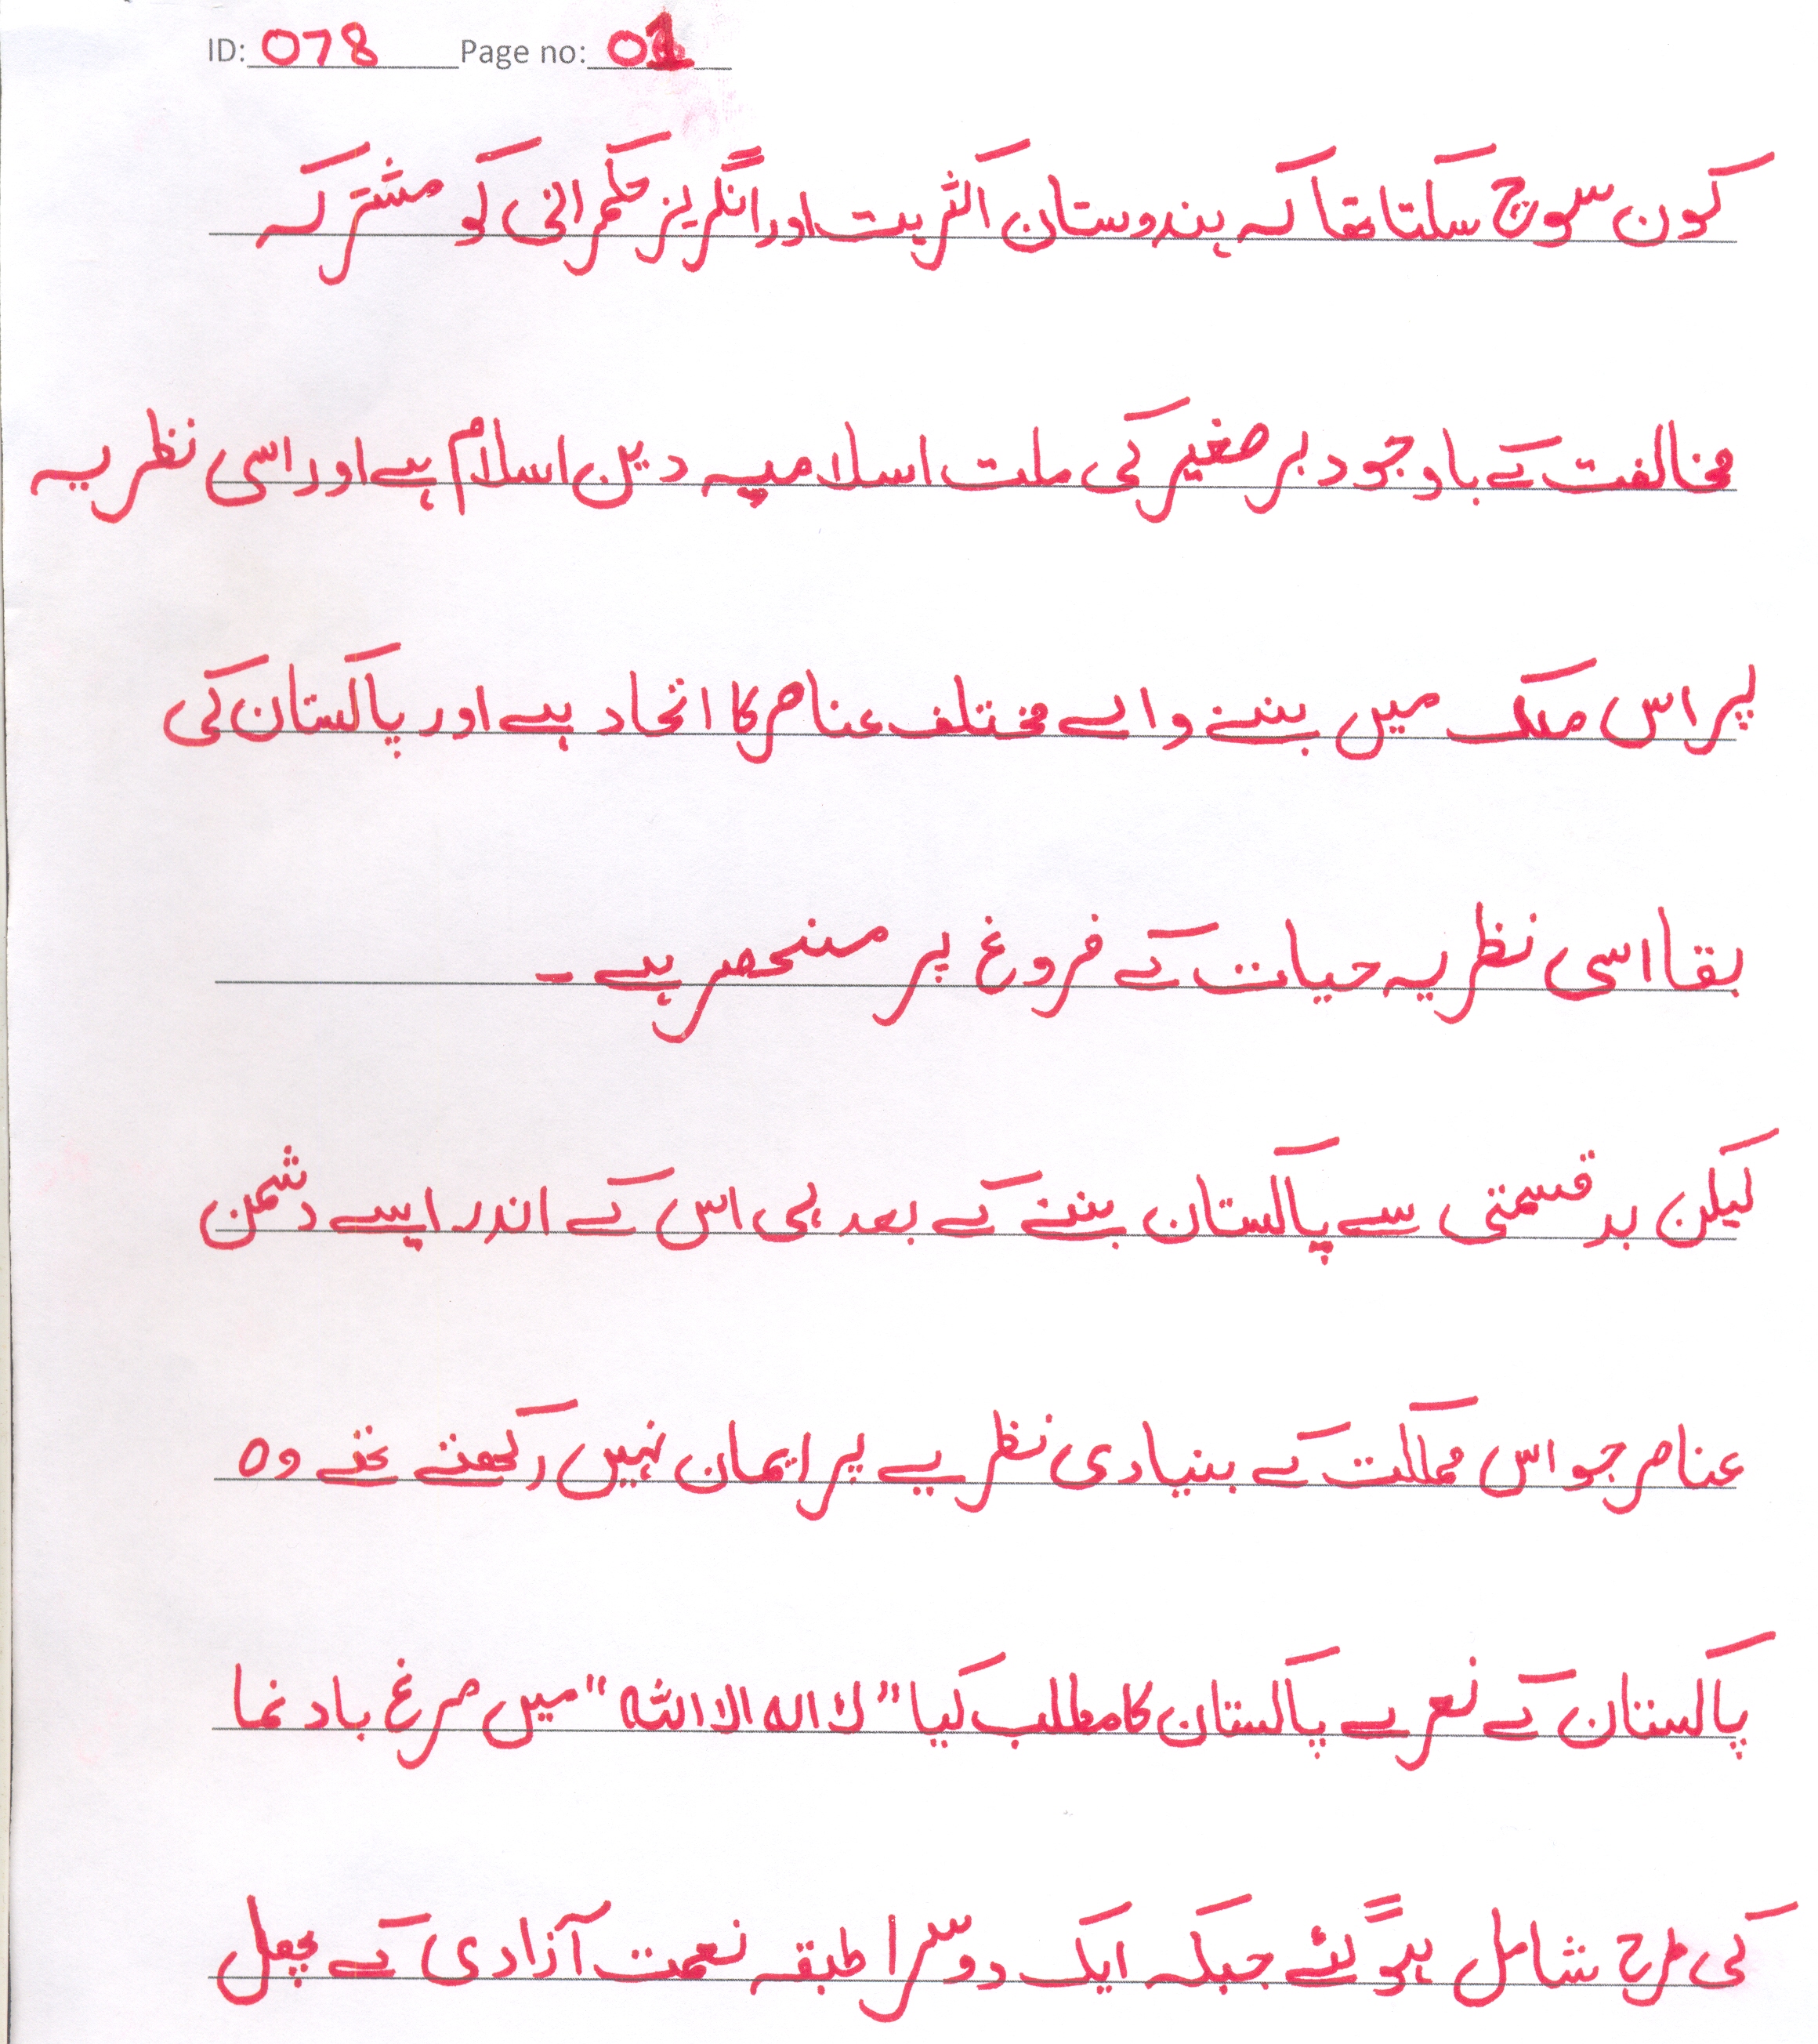 ID: 078 Page no: 01
کون سوچ سکتا تھا کہ ہندوستان اکثریت اور انگریز حکمرانی کو مشترکہ
مخالفت کے باوجود برصغیر کی ملت اسلامیہ دین اسلام ہے اور اسی نظریہ
پر اس ملک میں بسنے والے مختلف عناصر کا اتحاد ہے اور پاکستان کی
بقا اسی نظریہ حیات کے فروغ پر منحصر ہے ۔
لیکن بدقسمتی سے پاکستان بننے کے بعد ہی اس کے اندر ایسے دشمن
عناصر جو اس مملکت کے بنیادی نظریے پر ایمان نہیں رکھتے تھے وہ
پاکستان کے نعرے پاکستان کا مطلب کیا "لا الہ الا اللہ" میں مرغ باد نما
کی طرح شامل ہو گئے جبکہ ایک دوسرا طبقہ نعمت آزادی کے پھل